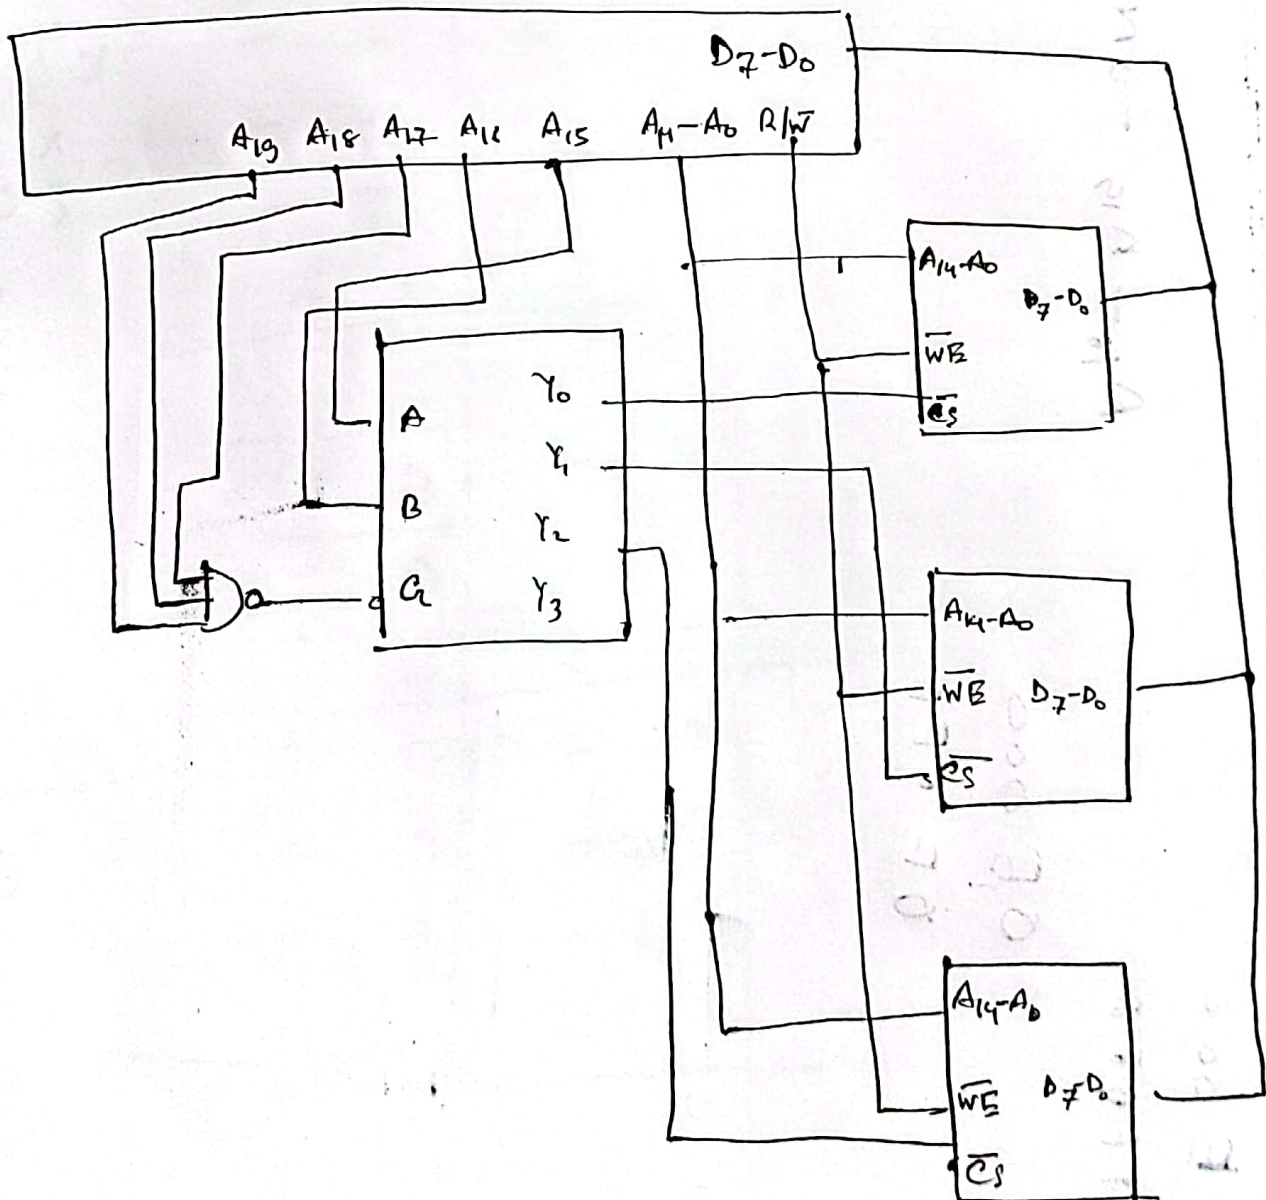 D7-D0
A19 A18 A17 A16 A15 A14-A0 R/W̅
A14-A0
D7-D0
W̅E̅
C̅S̅
Y0
A
Y1
B
Y2
G
Y3
A14-A0
W̅E̅ D7-D0
C̅S̅
A14-A0
W̅E̅ D7-D0
C̅S̅